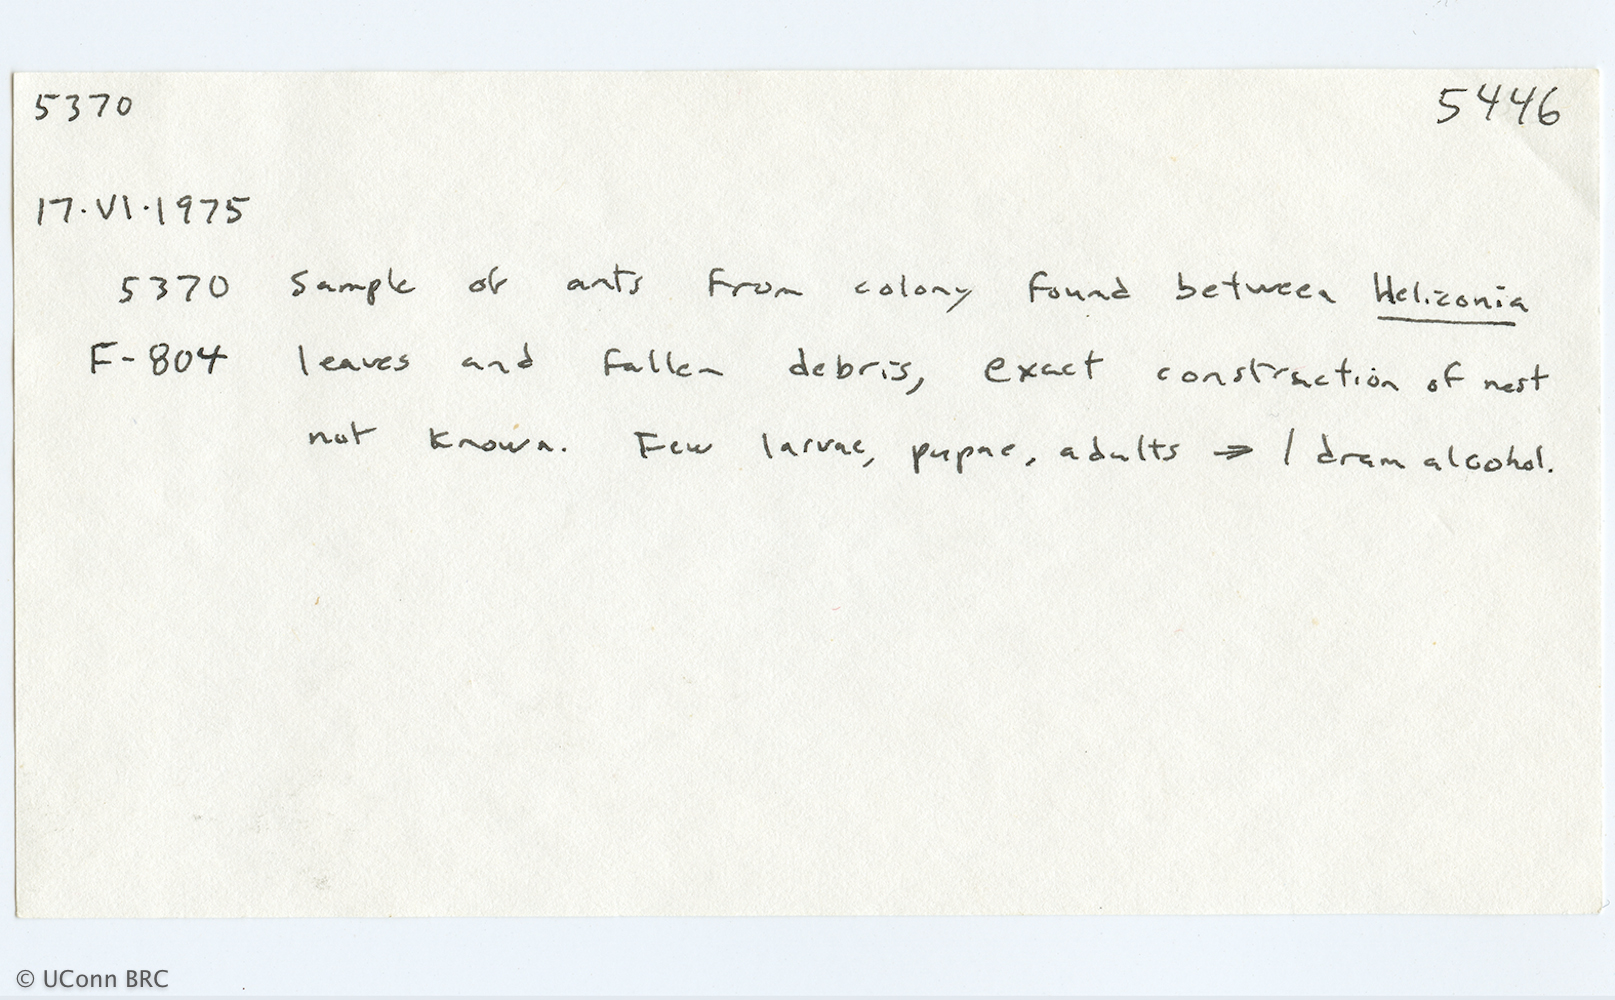 5370 5446
17·VI·1975
5370 Sample of ants from colony found between Heliconia
F-804 leaves and fallen debris, exact construction of nest
not known. Few larvae, pupae, adults ⇒ 1 dram alcohol.
© UConn BRC